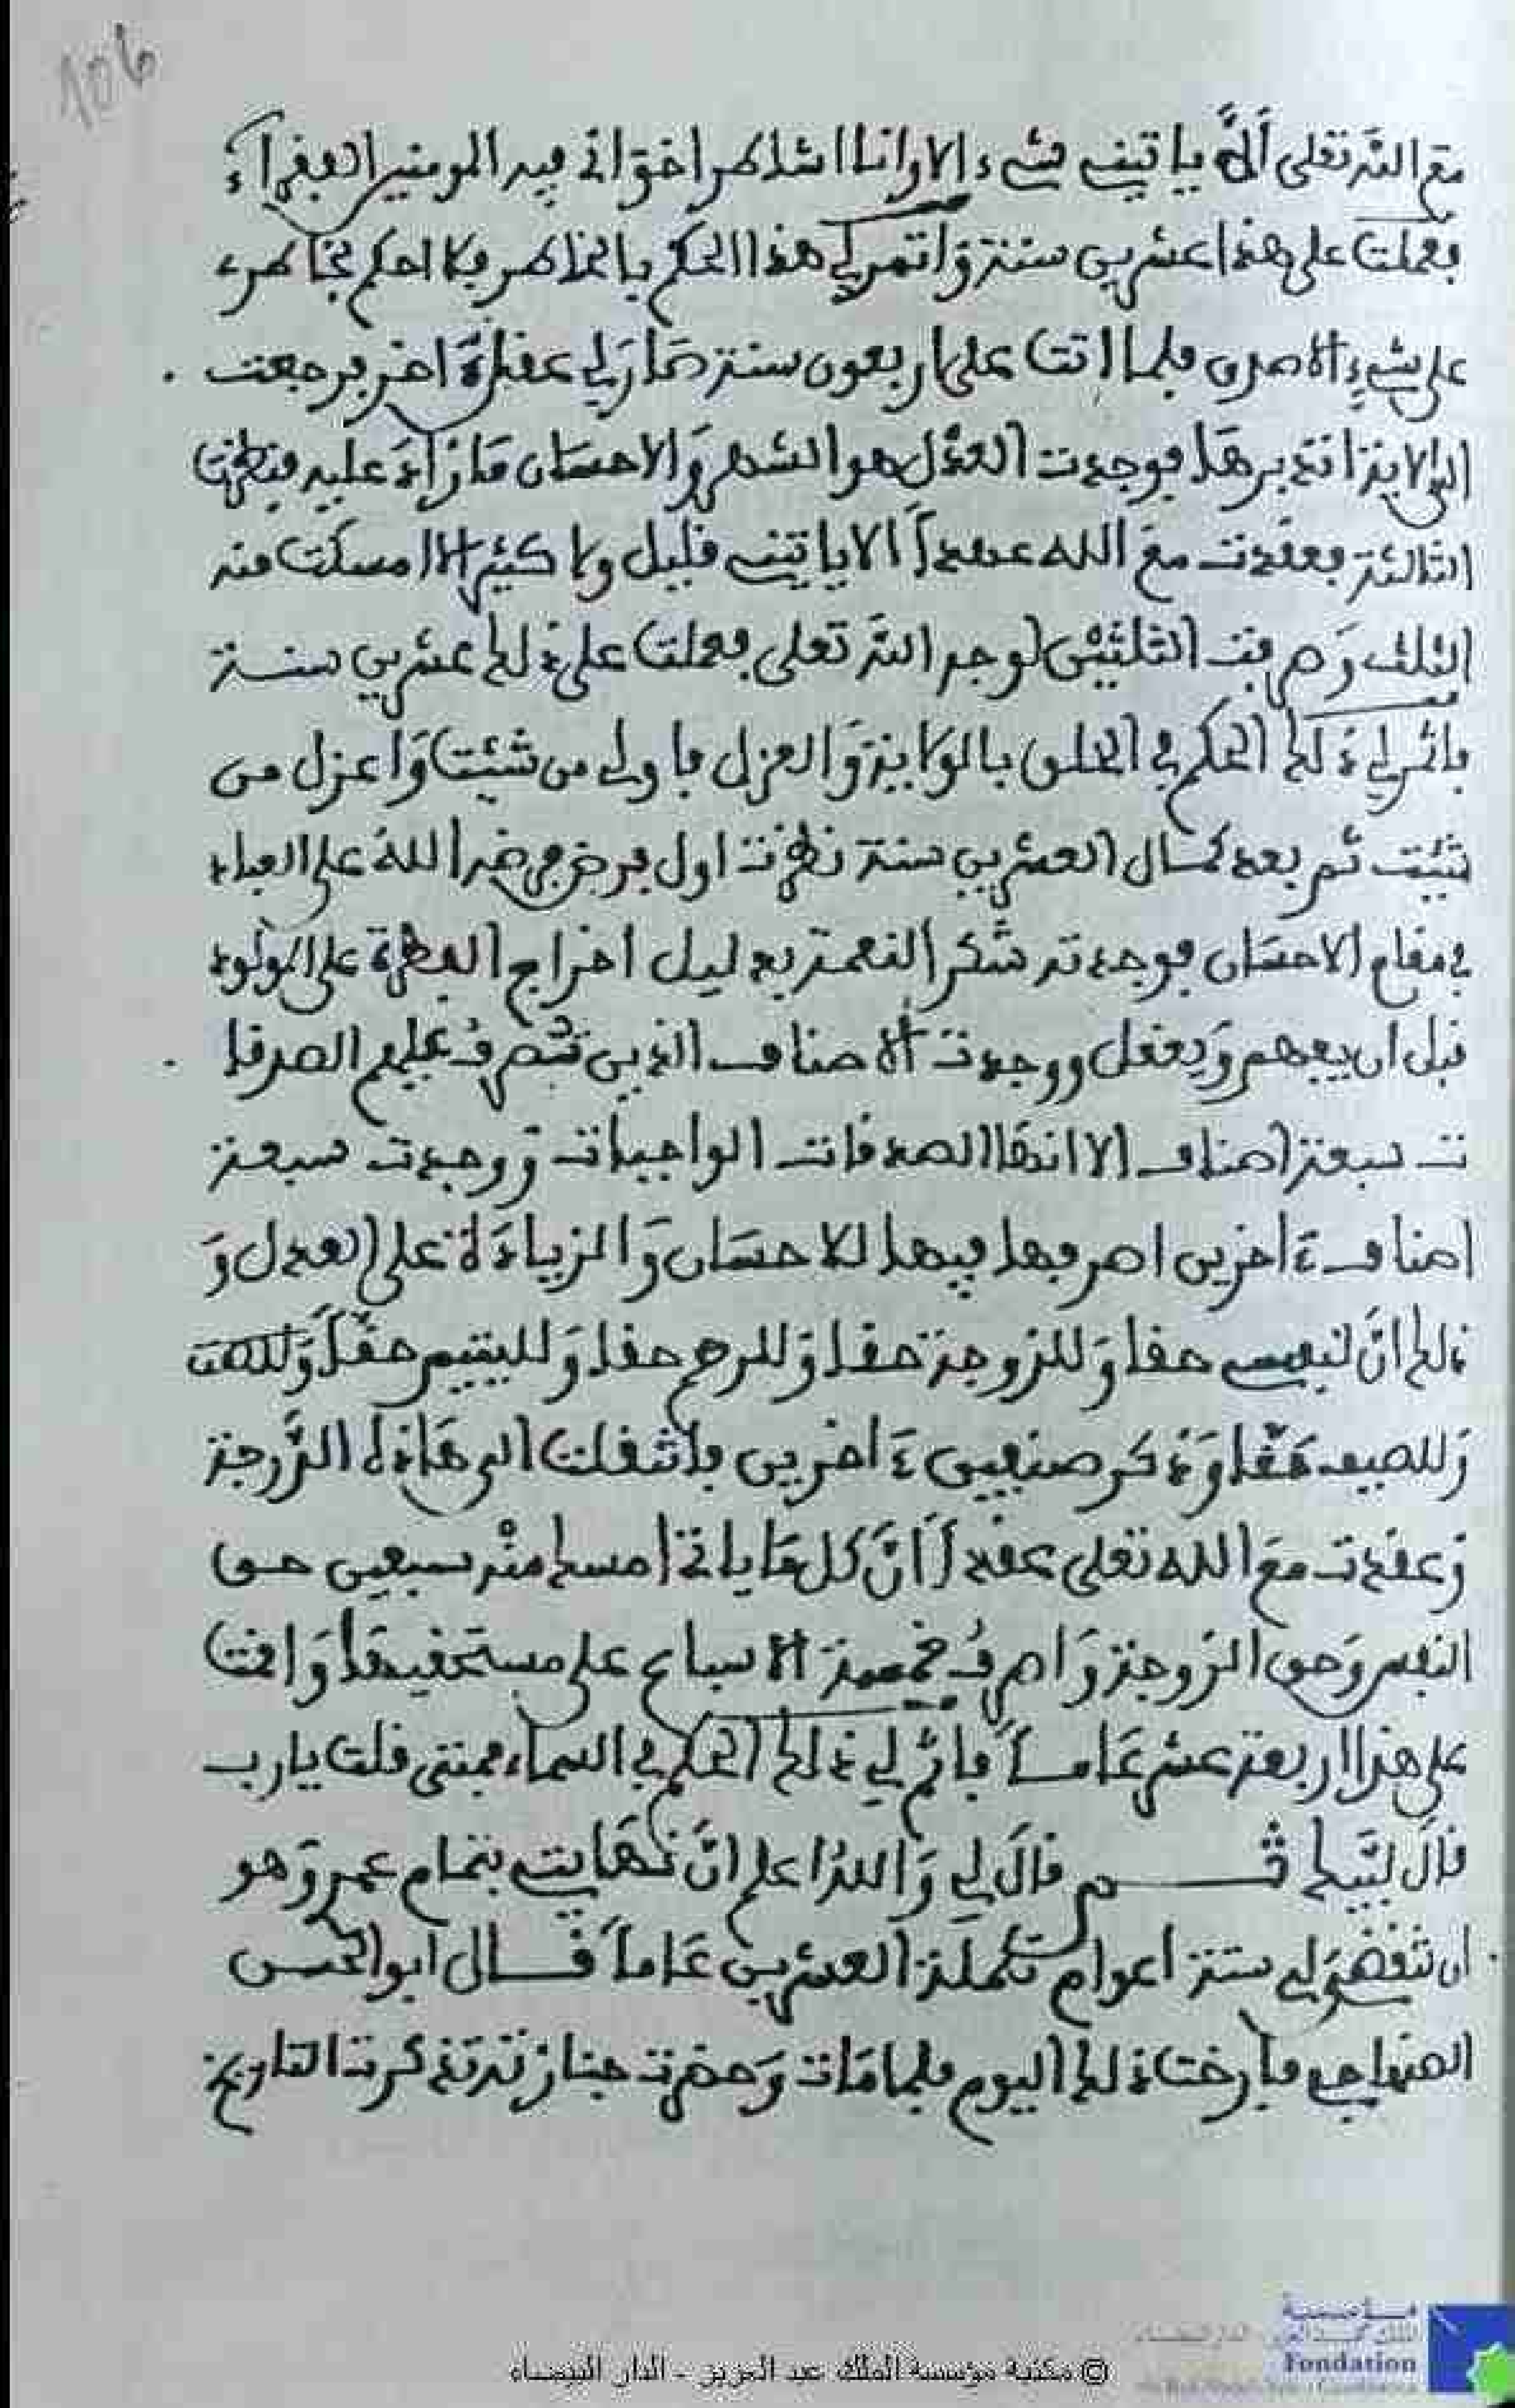 106
مع الله تعلى ألا ياتيني شيء الا وانا اشاطر اخواني فيه المومنين الفقراء
فعملت على هذا عشرين سنة واثمر لي هذا الحكم بالخاطر فلا احكم بخاطر
على شيء الا صدق فلما اتت علي اربعون سنة صار لي عقل آخر فرجعت
الى الاية اتدبرها فوجدت العدل هو الشطر والاحسان ما زاد عليه فنظرت
الثالثة فعقدت مع الله عقدا ألا ياتيني قليل ولا كثير الا امسكت منه
الثلث وصرفت الثلثين لوجه الله تعلى فعملت على ذلك عشرين سنة
فاثمر لي ذلك الحكم في الخلق بالولاية والعزل فاولي من شئت واعزل من
شئت ثم بعد كمال العشرين سنة نظرت اول فرض فرضه الله على العباد
في مقام الاحسان فوجدته شكر النعمة بدليل اخراج الفطرة على المولود
قبل ان يفهم ويعقل ووجدت الاصناف الذين تصرف عليهم الصدقا
ت سبعة اصناف الا انها الصدقات الواجبات ووجدت سبعة
اصناف ءاخرين اصرفها فيها للاحسان والزيادة على العدل و
ذلك ان لنفسي حقا وللزوجة حقا وللرحم حقا ولليتيم حقا
وللضيف حقا وذكر صنفين ءاخرين فانتقلت الى هاذه الزوجة
وعقدت مع الله تعلى عقدا ان كل ما ياتي امسك منه سبعين حق
النفس وحق الزوجة واصرف خمسة الاسباع على مستحقيها واقمت
على هذا اربعة عشر عاما فاثمر لي ذلك الحكم في السماء فمتى قلت يارب
قال لبيك ثم قال لي والله اعلم ان نهايتي بتمام عمره وهو
ان تنقضي لي ستة اعوام تكملة العشرين عاما قال ابو الحسن
الصنهاجي فارخت ذلك اليوم فلما مات وحضرت جنازته تذكرت التاريخ
مؤسسة
الملك عبد العزيز - الدار البيضاء
Fondation
© مكتبة مؤسسة الملك عبد العزيز - الدار البيضاء